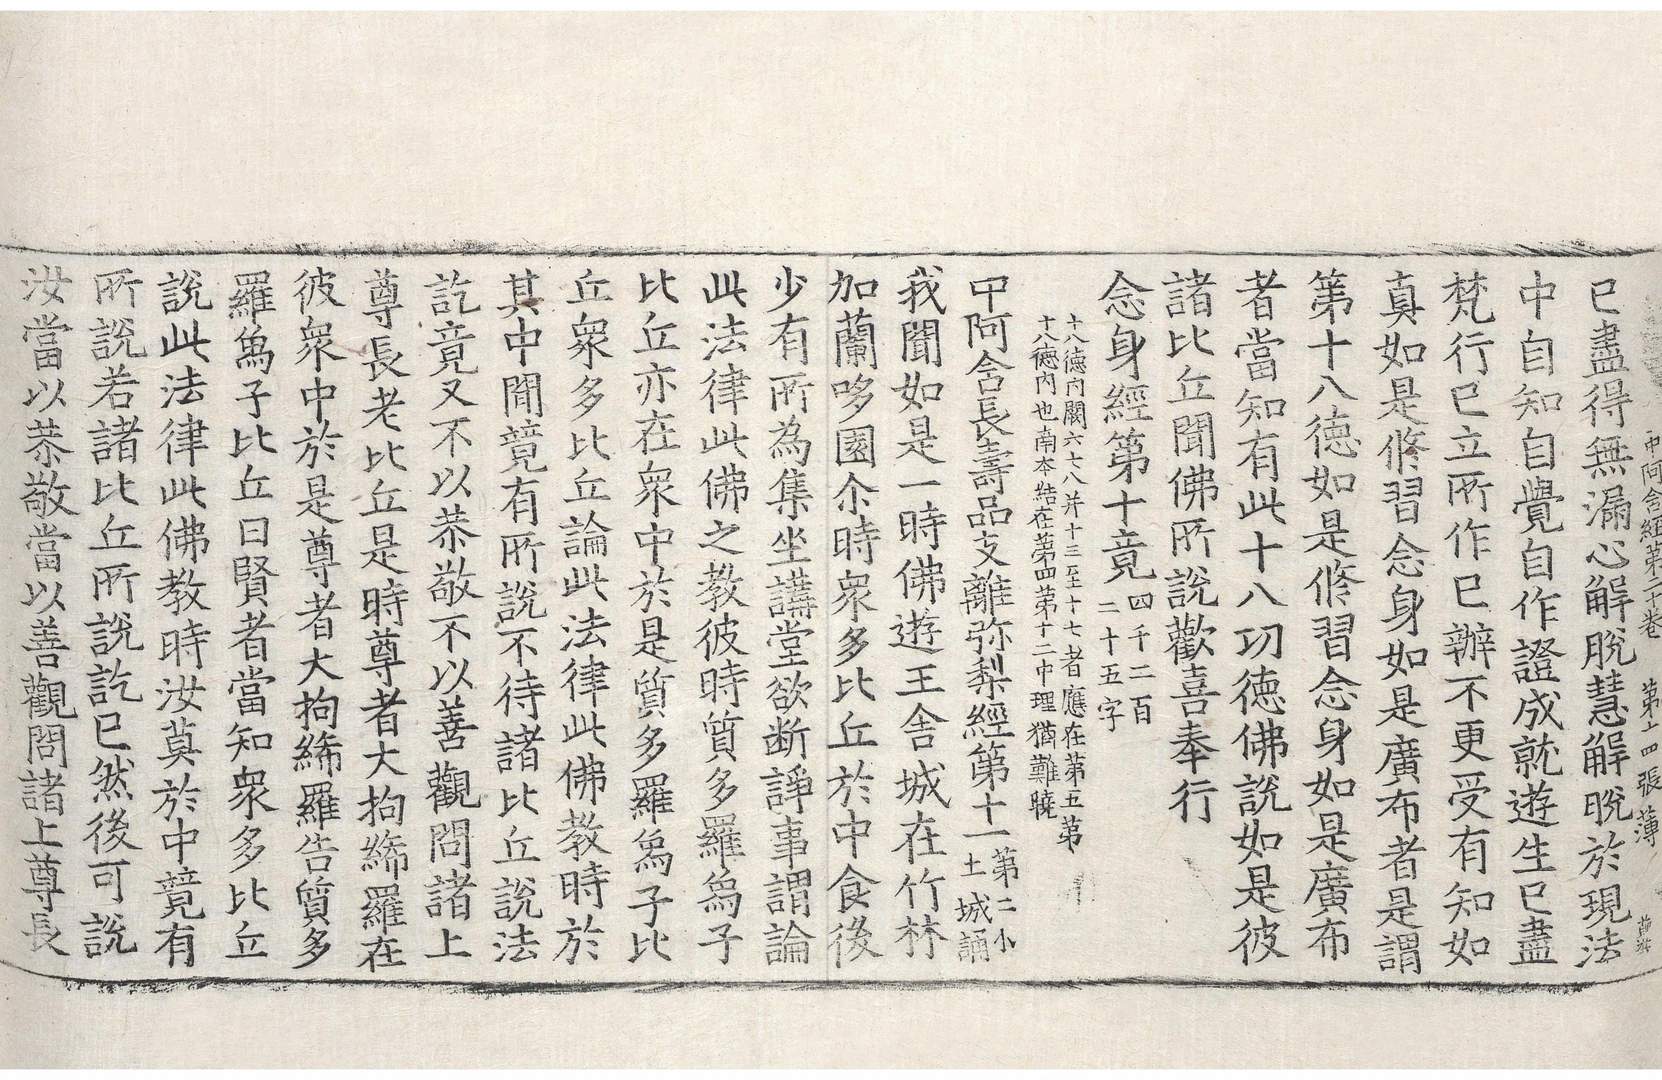 中阿含經第二十卷　第二十四張　薄
已盡得無漏心解脫慧解脫於現法
中自知自覺自作證成就遊生已盡
梵行已立所作已辦不更受有知如
真如是脩習念身如是廣布者是謂
第十八德如是脩習念身如是廣布
者當知有此十八功德佛說如是彼
諸比丘聞佛所說歡喜奉行
念身經第十竟四千二百
二十五字
十八德內闕六七八并十三至十七者應在第五第
十八德內也南本結在第四第十二中理猶難曉
中阿含長壽品支離弥梨經第十一第二小
土城誦
我聞如是一時佛遊王舍城在竹林
加蘭哆園尒時衆多比丘於中食後
少有所為集坐講堂欲断諍事謂論
此法律此佛之教彼時質多羅烏子
比丘亦在衆中於是質多羅烏子比
丘衆多比丘論此法律此佛教時於
其中間竟有所說不待諸比丘說法
訖竟又不以恭敬不以善觀問諸上
尊長老比丘是時尊者大拘絺羅在
彼衆中於是尊者大拘絺羅告質多
羅烏子比丘曰賢者當知衆多比丘
說此法律此佛教時汝莫於中竟有
所說若諸比丘所說訖已然後可說
汝當以恭敬當以善觀問諸上尊長